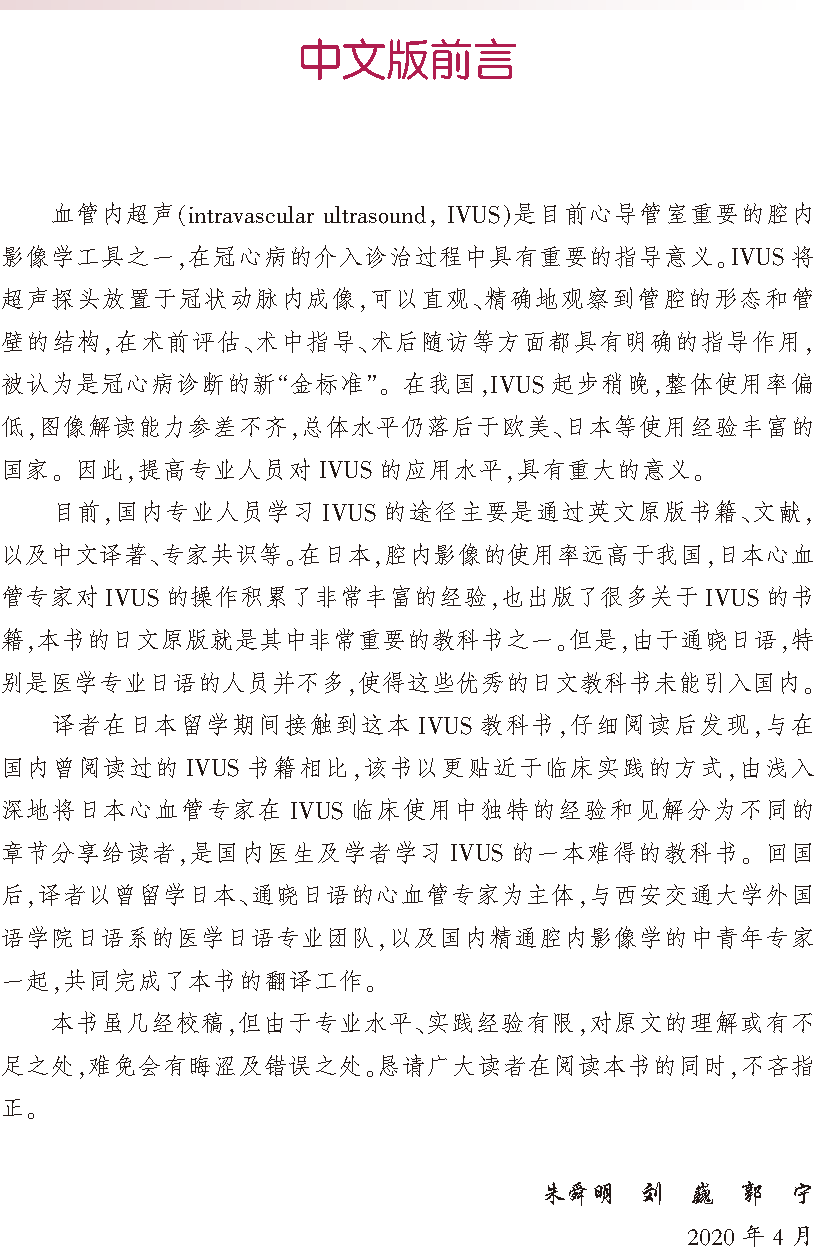 中文版前言
血管内超声(intravascular ultrasound, IVUS)是目前心导管室重要的腔内
影像学工具之一,在冠心病的介入诊治过程中具有重要的指导意义。IVUS 将
超声探头放置于冠状动脉内成像,可以直观、精确地观察到管腔的形态和管
壁的结构,在术前评估、术中指导、术后随访等方面都具有明确的指导作用,
被认为是冠心病诊断的新“金标准”。在我国,IVUS 起步稍晚,整体使用率偏
低,图像解读能力参差不齐,总体水平仍落后于欧美、日本等使用经验丰富的
国家。因此,提高专业人员对 IVUS 的应用水平,具有重大的意义。
目前,国内专业人员学习 IVUS 的途径主要是通过英文原版书籍、文献,
以及中文译著、专家共识等。在日本,腔内影像的使用率远高于我国,日本心血
管专家对 IVUS 的操作积累了非常丰富的经验,也出版了很多关于 IVUS 的书
籍,本书的日文原版就是其中非常重要的教科书之一。但是,由于通晓日语,特
别是医学专业日语的人员并不多,使得这些优秀的日文教科书未能引入国内。
译者在日本留学期间接触到这本 IVUS 教科书,仔细阅读后发现,与在
国内曾阅读过的 IVUS 书籍相比,该书以更贴近于临床实践的方式,由浅入
深地将日本心血管专家在 IVUS 临床使用中独特的经验和见解分为不同的
章节分享给读者,是国内医生及学者学习 IVUS 的一本难得的教科书。回国
后,译者以曾留学日本、通晓日语的心血管专家为主体,与西安交通大学外国
语学院日语系的医学日语专业团队,以及国内精通腔内影像学的中青年专家
一起,共同完成了本书的翻译工作。
本书虽几经校稿,但由于专业水平、实践经验有限,对原文的理解或有不
足之处,难免会有晦涩及错误之处。恳请广大读者在阅读本书的同时,不吝指
正。
朱舜明 刘 巍 郭 宁
2020 年 4 月